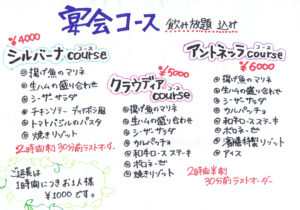 宴会コース 飲み放題 込み
¥4000
シルバーナ コース course
◎揚げ魚のマリネ
◎生ハムの盛り合わせ
◎シーザーサラダ
◎チキンソテー ディアボラ風
◎トマトバジルのパスタ
◎焼きリゾット
2時間制 30分前ラストオーダー
ご延長は
1時間につきお1人様
¥1000です。
¥5000
クラウディア コース course
◎揚げ魚のマリネ
◎生ハムの盛り合わせ
◎シーザーサラダ
◎カルパッチョ
◎和牛ロースステーキ
◎ボロネーゼ
◎焼きリゾット
¥6000
アントネッラ コース course
◎揚げ魚のマリネ
◎生ハムの盛り合わせ
◎シーザーサラダ
◎カルパッチョ
◎和牛ロースステーキ
◎ボロネーゼ
◎特製リゾット
◎アイス
2時間半制
30分前ラストオーダー